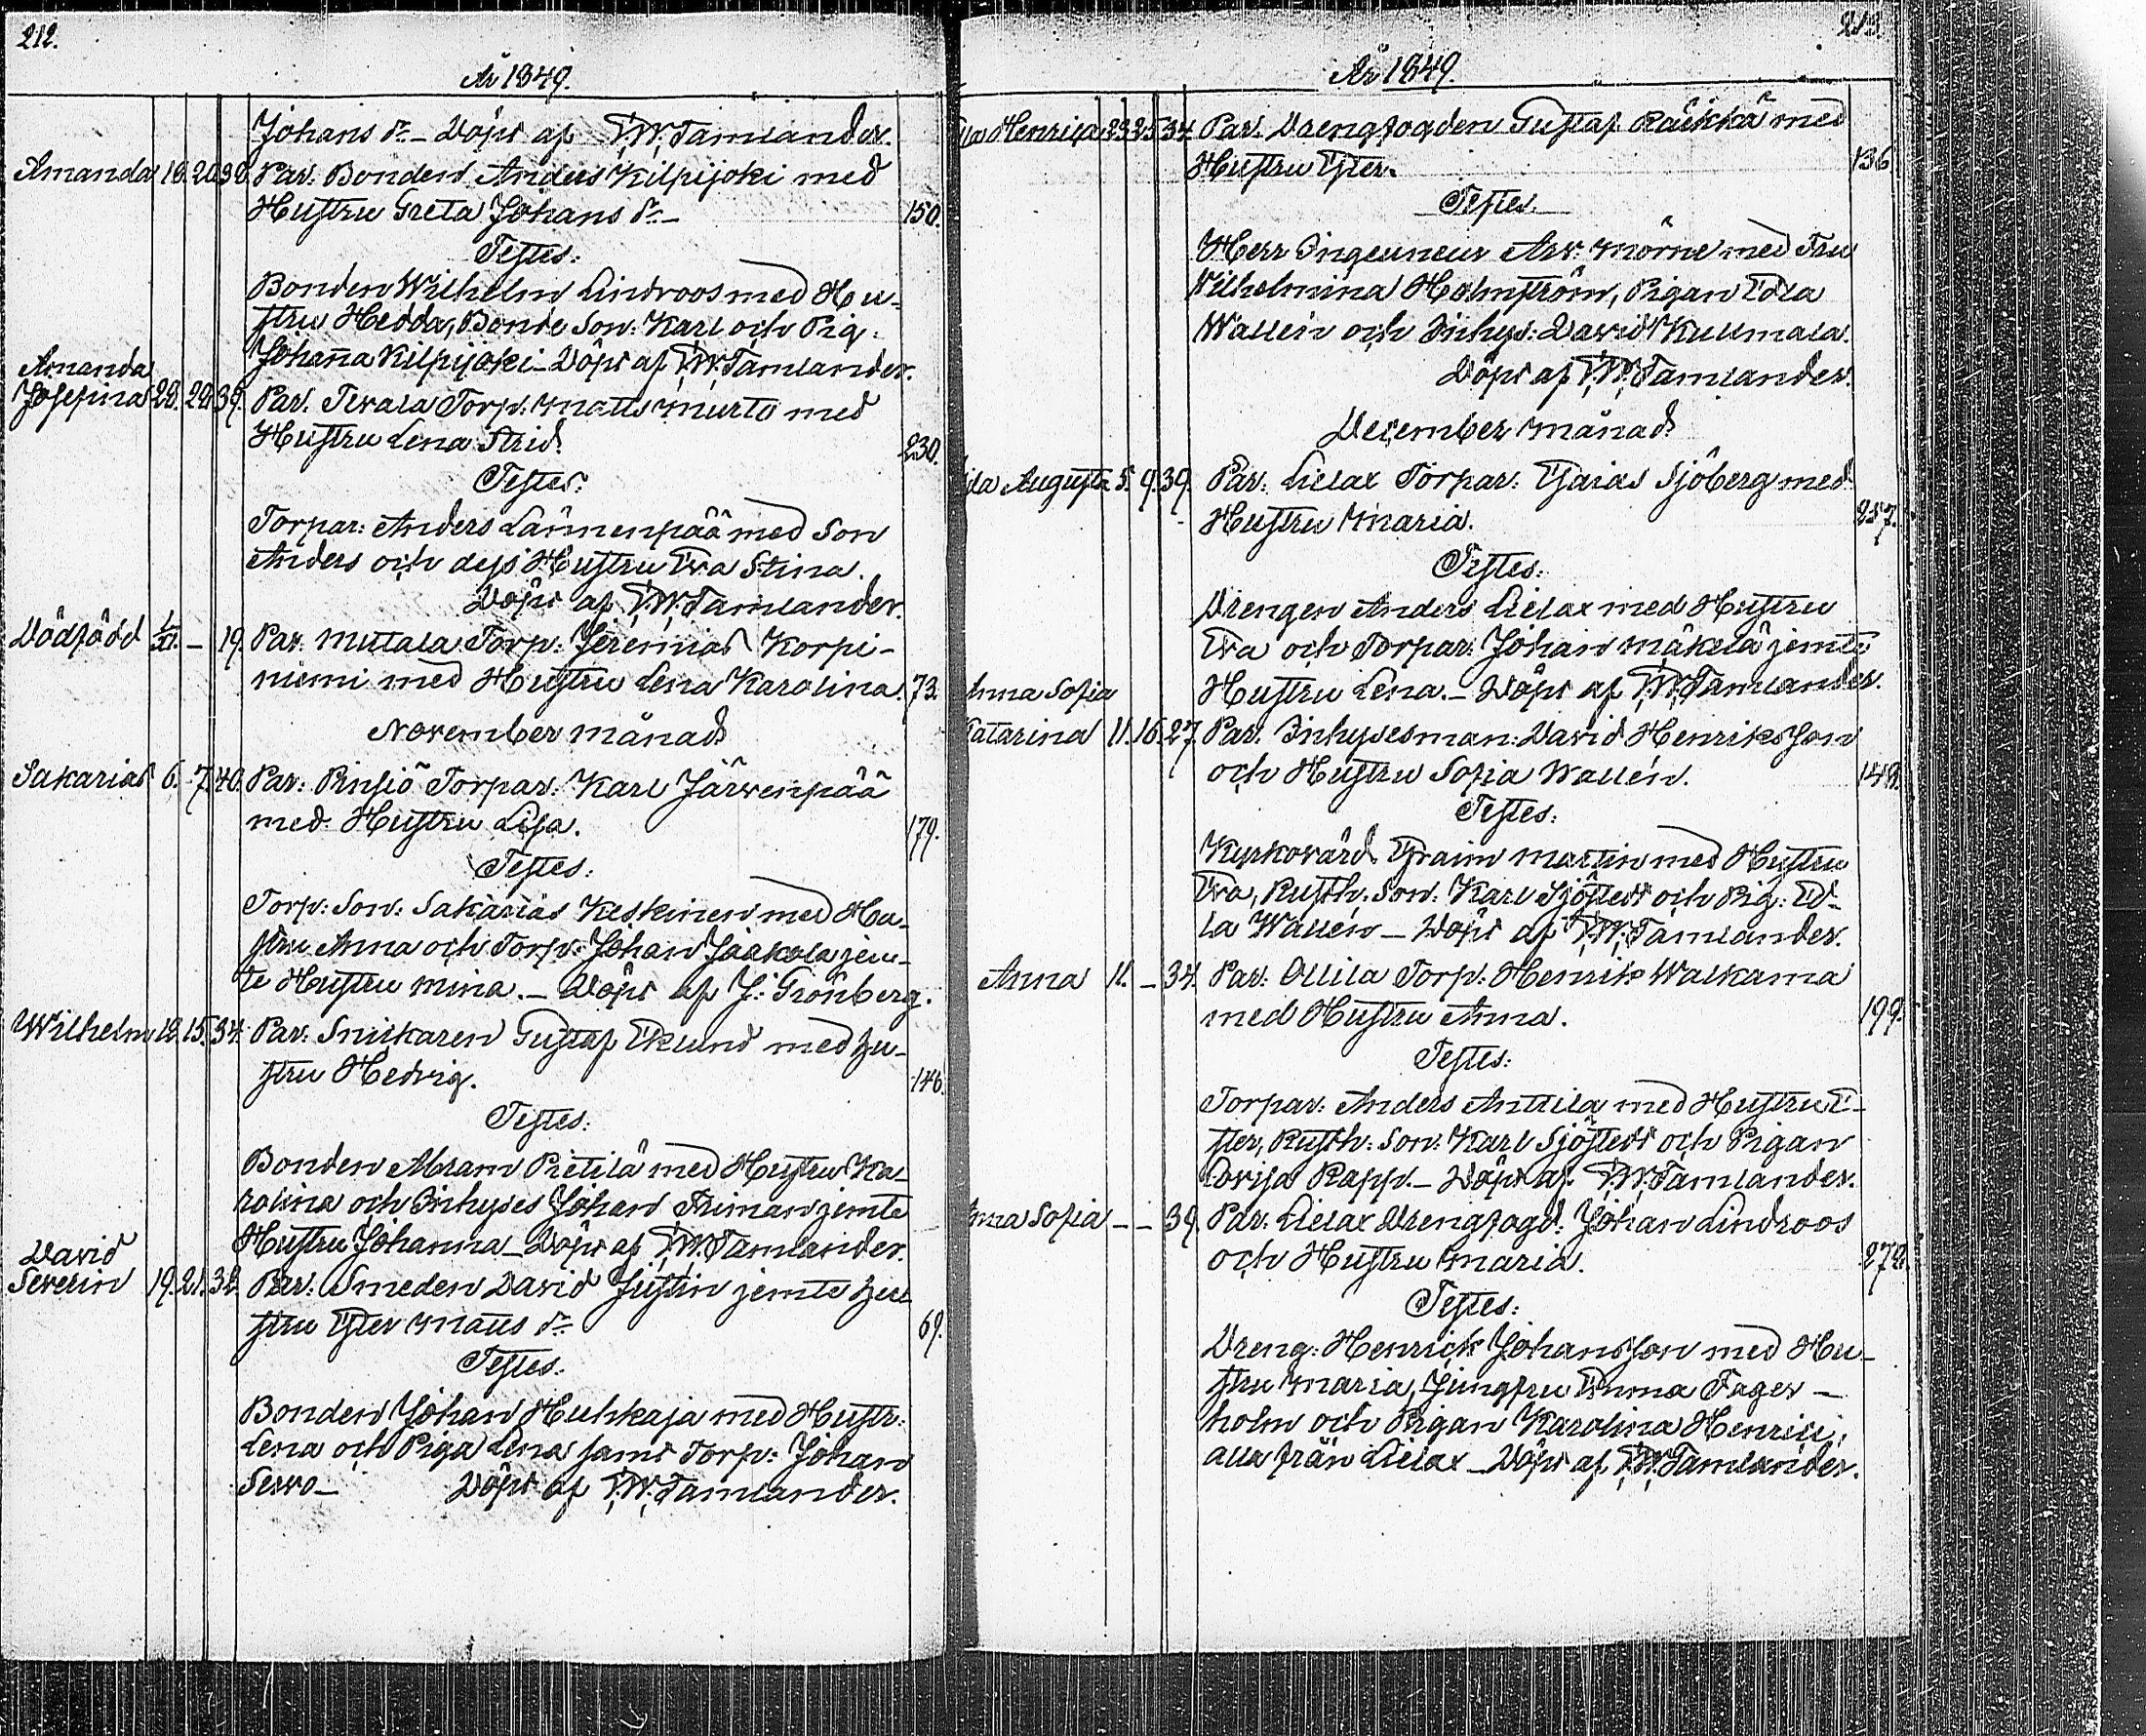 212.
År 1849.
Johans dr. – Döpt af F. W. Tamlander.
Amanda 16. 20. 39. Par: Bonden Anders Kilpijoki med
Hustru Greta Johans dr. – 150.
Testes:
Bonden Wilhelm Lindroos med Hu-
stru Hedda, Bonde Son: Karl och Pig:
Johanna Kilpijoki – Döpt af F. W. Tamlander.
Amanda
Josefina 22. 22. 39. Par. Torp: Matts Murto med
Hustru Lena Strid. 230.
Testes:
Torpar: Anders Lammenpää med Son
Anders och dess Hustru Eva Stina.
Döpt af F. W. Tamlander.
Dödfödd – 19. Par. Torp: Jeremias Korpi-
niemi med Hustru Lena Karolina. 73.
November månad
Sakarias 6. 7. 40. Par: Torpar: Karl Järvenpää
med Hustru Lisa. 179.
Testes:
Torp: Son: Sakarias Keskinen med Hu-
stru Anna och Torp: Johan Jaakola jem-
te Hustru Mina. – Döpt af J: Grönberg.
Wilhelm 12. 15. 34. Par: Snickaren Gustaf Eklund med hu-
stru Hedvig. 146.
Testes:
Bonden Abram Pietilä med Hustru Ka-
rolina och Inhyses Johan Friman jemte
Hustru Johanna – Döpt af F. W. Tamlander.
David
Severin 19. 21. 32. Par: Smeden David Justin jemte hu-
stru Ester Matts dr. 69.
Testes:
Bonden Johan Huhkaja med Hustr:
Lena och Piga Lena samt Torp: Johan
Servo – Döpt af F. W. Tamlander.
213.
År 1849.
Henrica 23. 25. 34. Par. Drengfogden Gustaf Räikkä med
Hustru Ester. 136
Testes.
Herr Ingeuneur Arv: Mörne med Fru
Vilhelmina Holmström, Pigan Edla
Wallén och Inhys: David Kullmala.
Döpt af F. W. Tamlander.
December månad
Augusta 5. 9. 39. Par. Lielax Torpar: Esaias Sjöberg med
Hustru Maria. 257.
Testes:
Drengen Anders Lielax med Hustru
Eva och Torpar: Johan Mäkelä jemte
Hustru Lena. – Döpt af F. W. Tamlander.
Anna Sofia
Katarina 11. 16. 27. Par. Inhysesman: David Henriksson
och Hustru Sofia Wallén. 148.
Testes:
Kyrkovärd Efraim Martin med Hustru
Eva, Rusth: Son: Karl Sjöstedt och Pig: Ed-
la Wallén – Döpt af F. W. Tamlander.
Anna 11. – 34. Par. Ollila Torp: Henrik Walkama
med Hustru Anna. 199.
Testes:
Torpar: Anders Anttila med Hustru E-
ster, Rusth: Son: Karl Sjöstedt och Pigan
Lovisa Rapp. – Döpt af F. W. Tamlander.
Anna Sofia – – 39. Par. Lielax Drengfogd: Johan Lindroos
och Hustru Maria. 272.
Testes:
Dreng: Henrick Johansson med Hu-
stru Maria, Jungfru Emma Fager-
holm och Pigan Karolina Henrici,
alla från Lielax – Döpt af F. W. Tamlander.